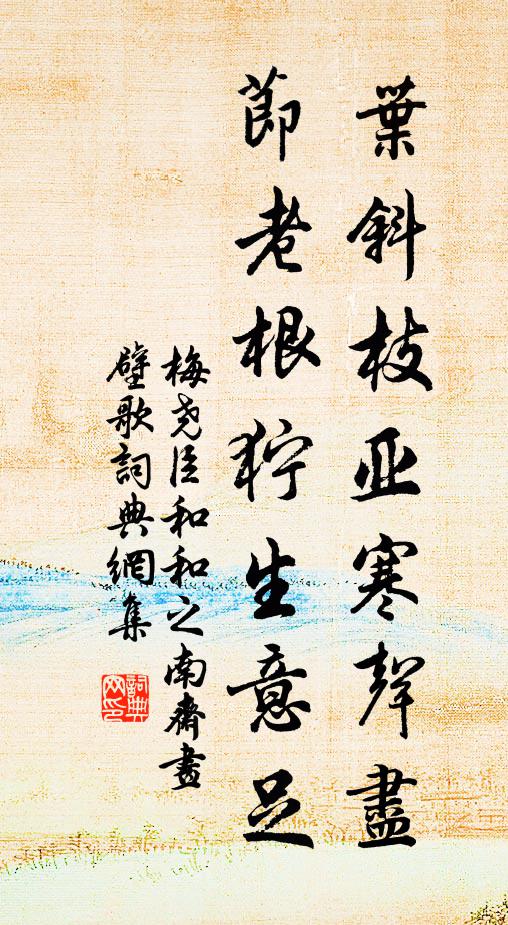 葉斜枝亚寒聲盡
莭老根狞生意足
梅尧臣和和之南齋畫
壁歌詞典網集
詞典
网印